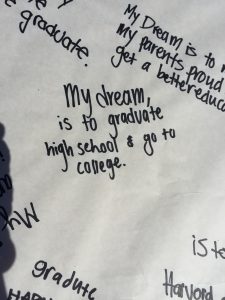 graduate.
My Dream is to
my parents proud
get a better educa
My dream,
is to graduate
high school & go to
college.
is to
gradute
Harvard